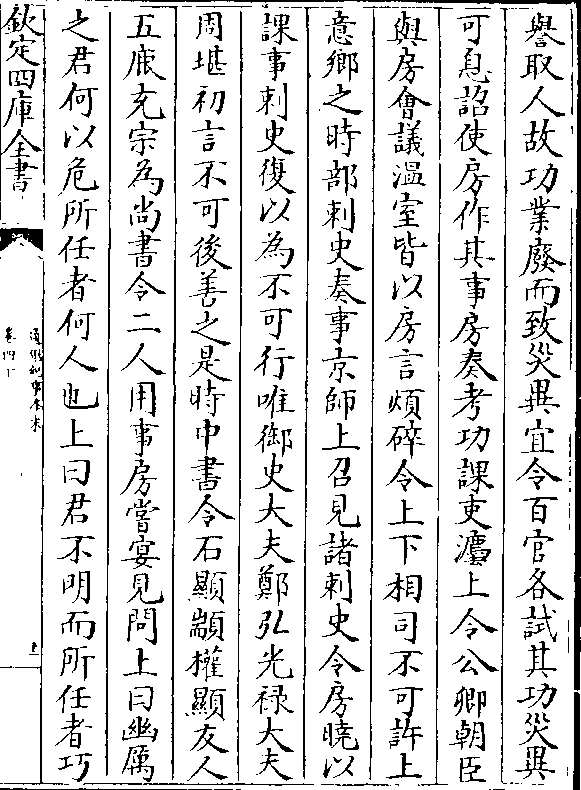 譽取人故功業廢而致災異宜令百官各試其功災異
可息詔使房作其事房奏考功課吏灋上令公卿朝臣
與房會議溫室皆以房言煩碎令上下相司不可許上
意鄉之時部刺史奏事京師上召見諸刺史令房曉以
課事刺史復以為不可行唯御史大夫鄭弘光禄大夫
周堪初言不可後善之是時中書令石顯顓權顯友人
五鹿充宗為尚書令二人用事房嘗宴見問上曰幽厲
之君何以危所任者何人也上曰君不明而所任者巧
欽定四庫全書
通鑑紀事本末
卷四下